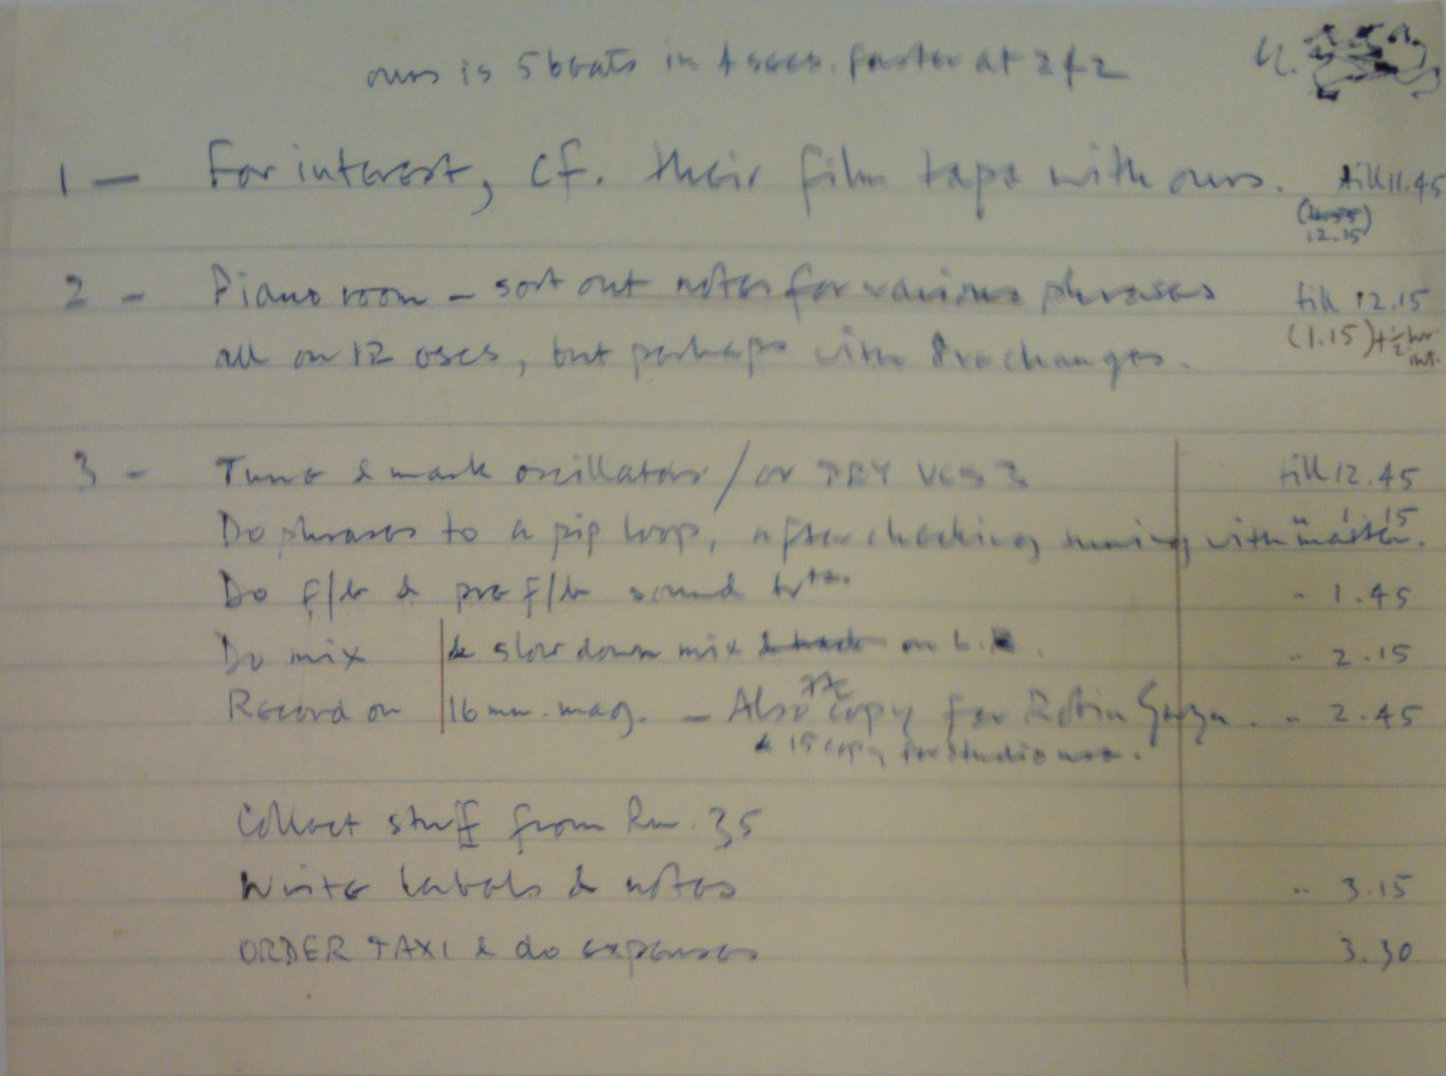 ours is 5 beats in 4 secs. faster at 2f2
1 — For interest, cf. their film tape with ours. till 11.45
12.15
2 - Piano room – sort out notes for various phrases till 12.15
all on 12 oscs, but perhaps with 8ve changes. (1.15) + ½ hr
3 - Tune & mark oscillators / or TRY VCS 3 till 12.45
Do phrases to a pip loop, after checking timing with master. " 1.15
Do f/b & pre f/b sound " 1.45
Do mix & slow down mix on L.R. " 2.15
Record on 16mm. mag. – Also copy for Robin " 2.45
& 15 copy for studio use.
Collect stuff from Rm. 35
Write labels & notes " 3.15
ORDER TAXI & do expenses 3.30